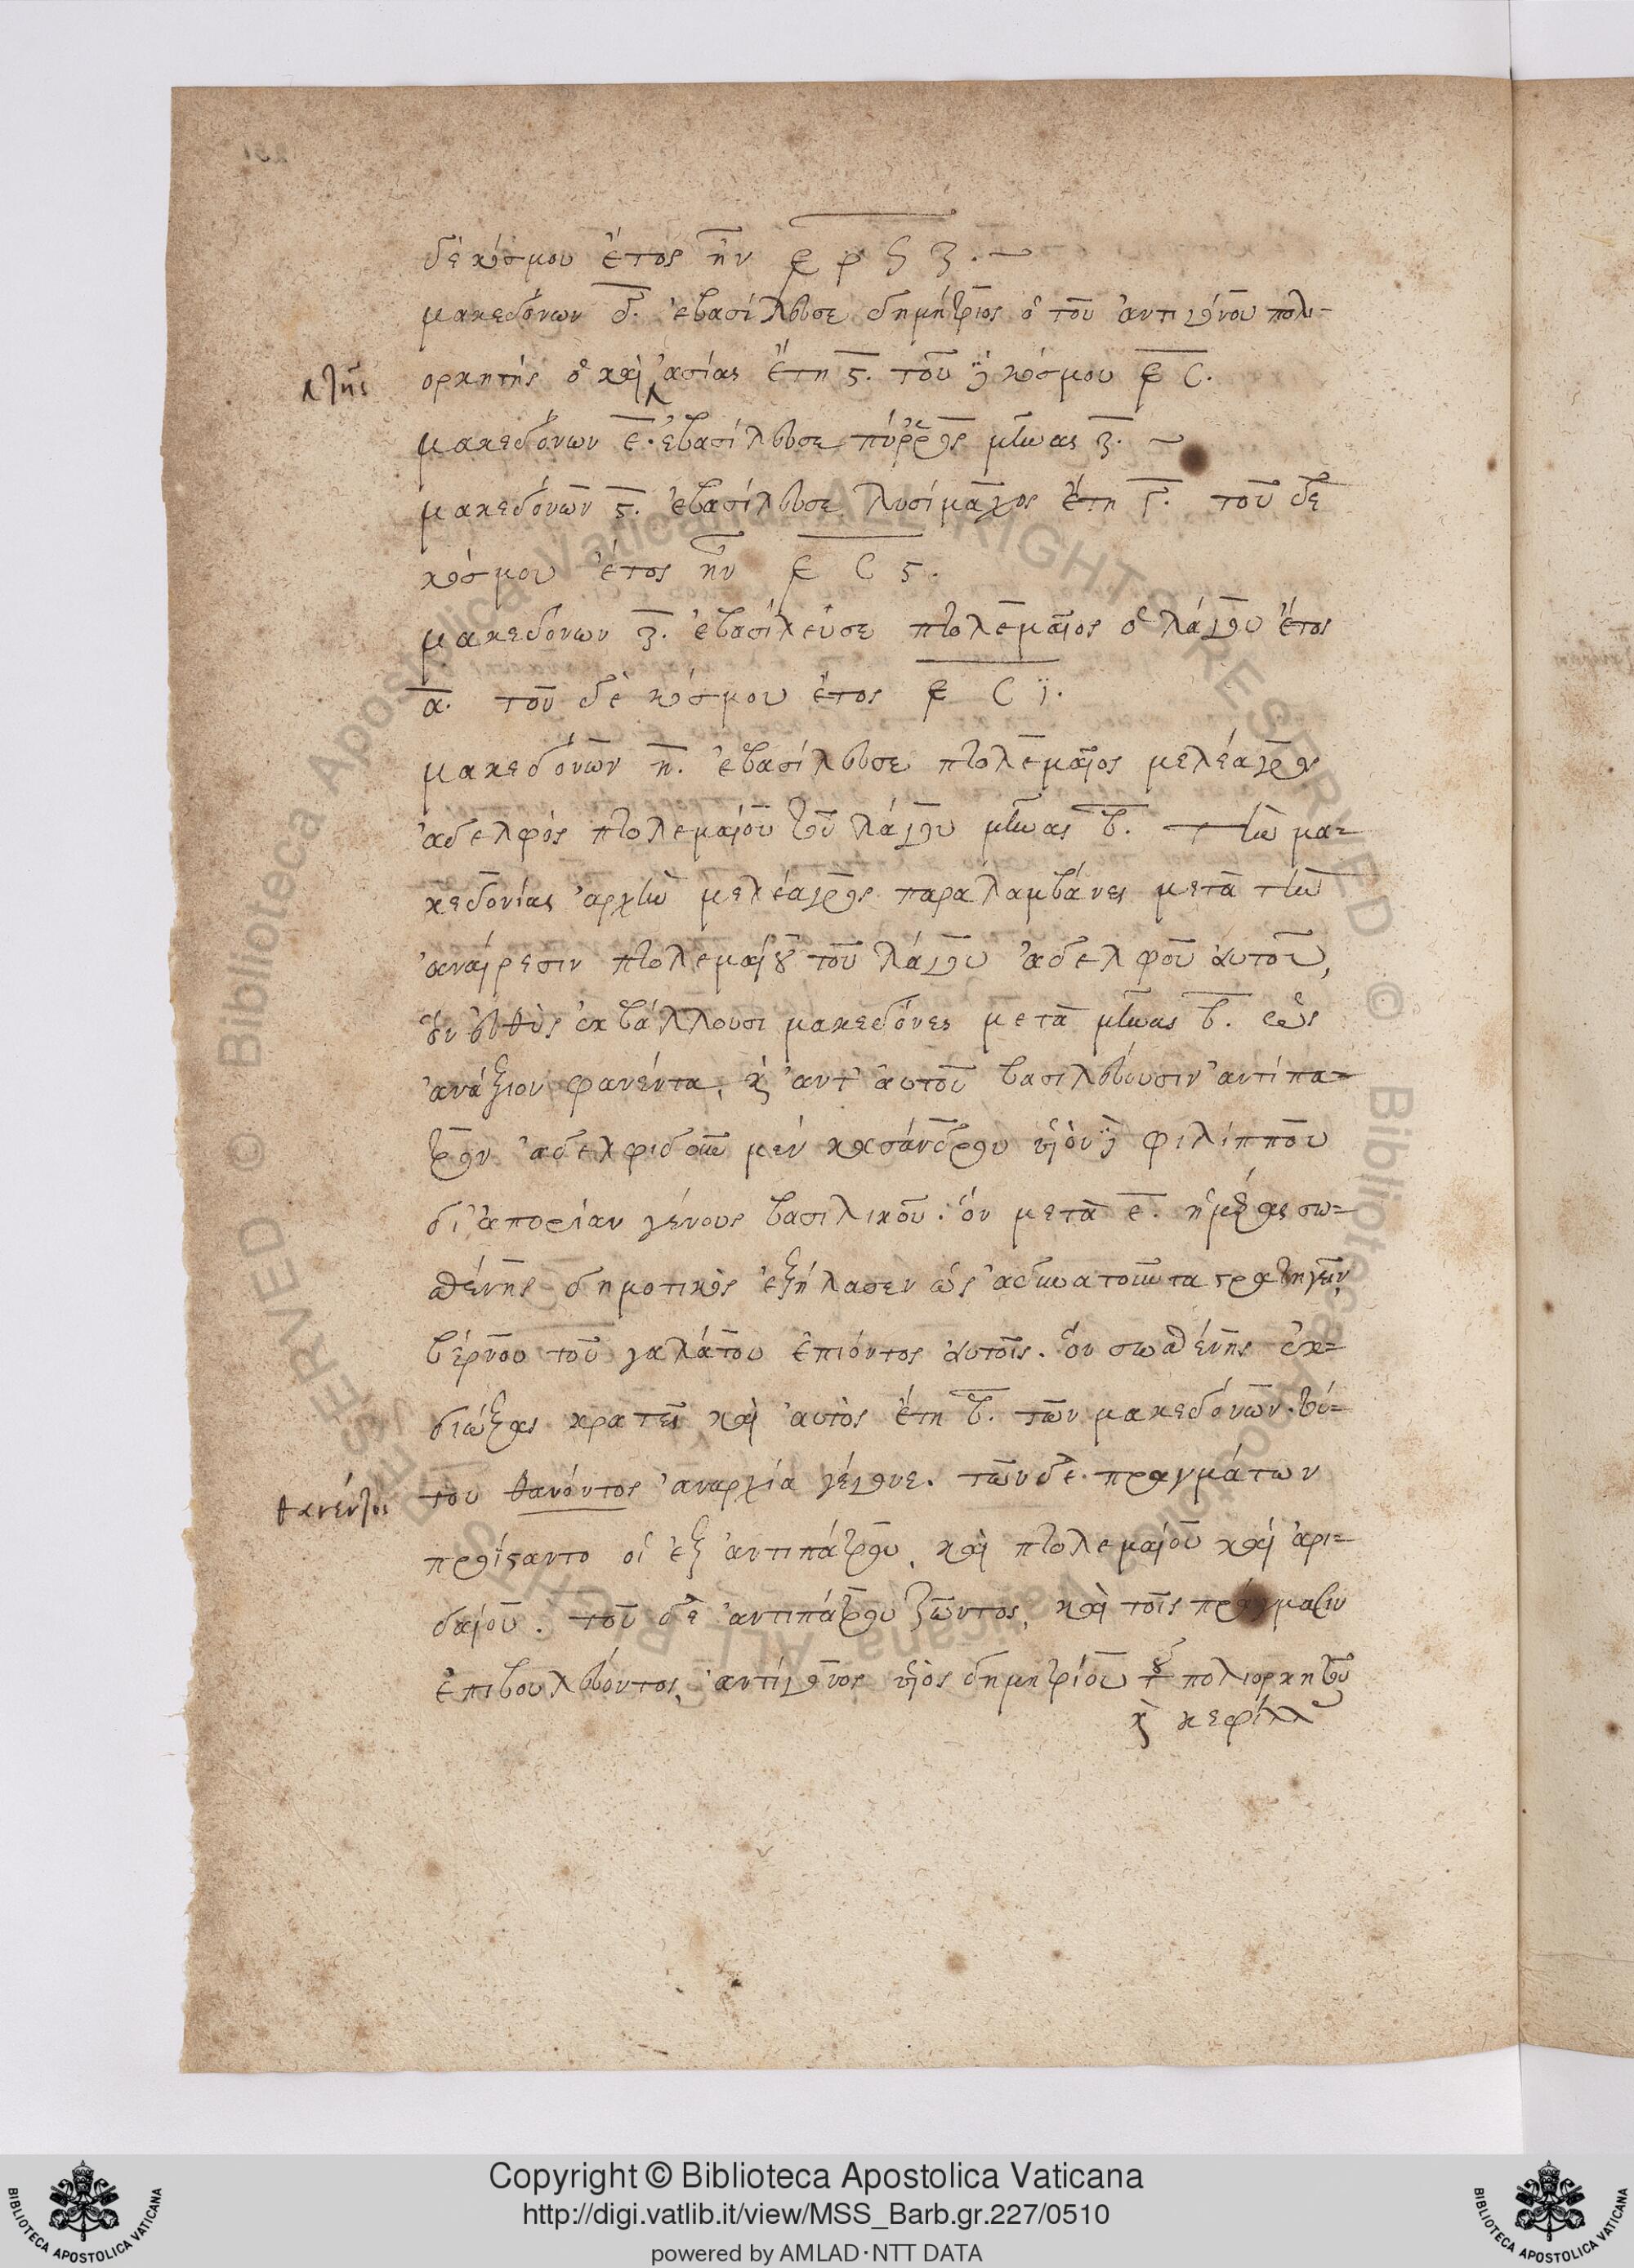 δὲ κόσμου ἔτος ἦν ͵ερϟζ.
μακεδόνων δ. ἐβασίλευσε δημήτριος ὁ τοῦ ἀντιγόνου πολι-
ορκητής ὁ καὶ ἀσίας ἔτη ς. τοῦ δὲ κόσμου ͵εσ.
τῆς
μακεδόνων ε. ἐβασίλευσε πύρρος μῆνας ζ.
μακεδόνων ς. ἐβασίλευσε λυσίμαχος ἔτη ϛ. τοῦ δὲ
κόσμου ἔτος ἦν ͵εσς.
μακεδόνων ζ. ἐβασίλευσε πτολεμαῖος ὁ λάγου ἔτος
α. τοῦ δὲ κόσμου ἔτος ͵εσϊ.
μακεδόνων η. ἐβασίλευσε πτολεμαῖος μελέαγρος
ἀδελφός πτολεμαίου τοῦ λάγου μῆνας β. τὴν μα-
κεδονίας ἀρχὴν μελέαγρος παραλαμβάνει μετὰ τὴν
ἀναίρεσιν πτολεμαίου τοῦ λάγου ἀδελφοῦ αὐτοῦ,
ὃν εὐθὺς ἐκβάλλουσι μακεδόνες μετὰ μῆνας β. ὡς
ἀνάξιον φανέντα, καὶ ἀντ' αὐτοῦ βασιλεύουσιν ἀντίπα-
τρον ἀδελφιδοῦν μὲν κασάνδρου υἱὸν δὲ φιλίππου
δι' ἀπορίαν γένους βασιλικοῦ. ὃν μετὰ ε. ἡμέρας σω-
σθένης δημοτικὸς ἐξήλασεν ὡς ἀδυνατοῦντα στρατηγεῖν,
βέρνου τοῦ γαλάτου ἐπιόντος αὐτοῖς. ὃν σωσθένης ἐκ-
διώξας κρατεῖ καὶ αὐτὸς ἔτη β. τῶν μακεδόνων. τού-
του θανόντος ἀναρχία γέγονε. τῶν δὲ πραγμάτων
θανέντος
προΐσταντο οἱ ἐξ ἀντιπάτρου, καὶ πτολεμαίου καὶ ἀρι-
δαίου. τοῦ δὲ ἀντιπάτρου ζῶντος, καὶ τοῖς πράγμασιν
ἐπιβουλεύοντος, ἀντίγονος υἱὸς δημητρίου τοῦ πολιορκητοῦ
καὶ κεφίλλ
Copyright © Biblioteca Apostolica Vaticana
http://digi.vatlib.it/view/MSS_Barb.gr.227/0510
powered by AMLAD·NTT DATA